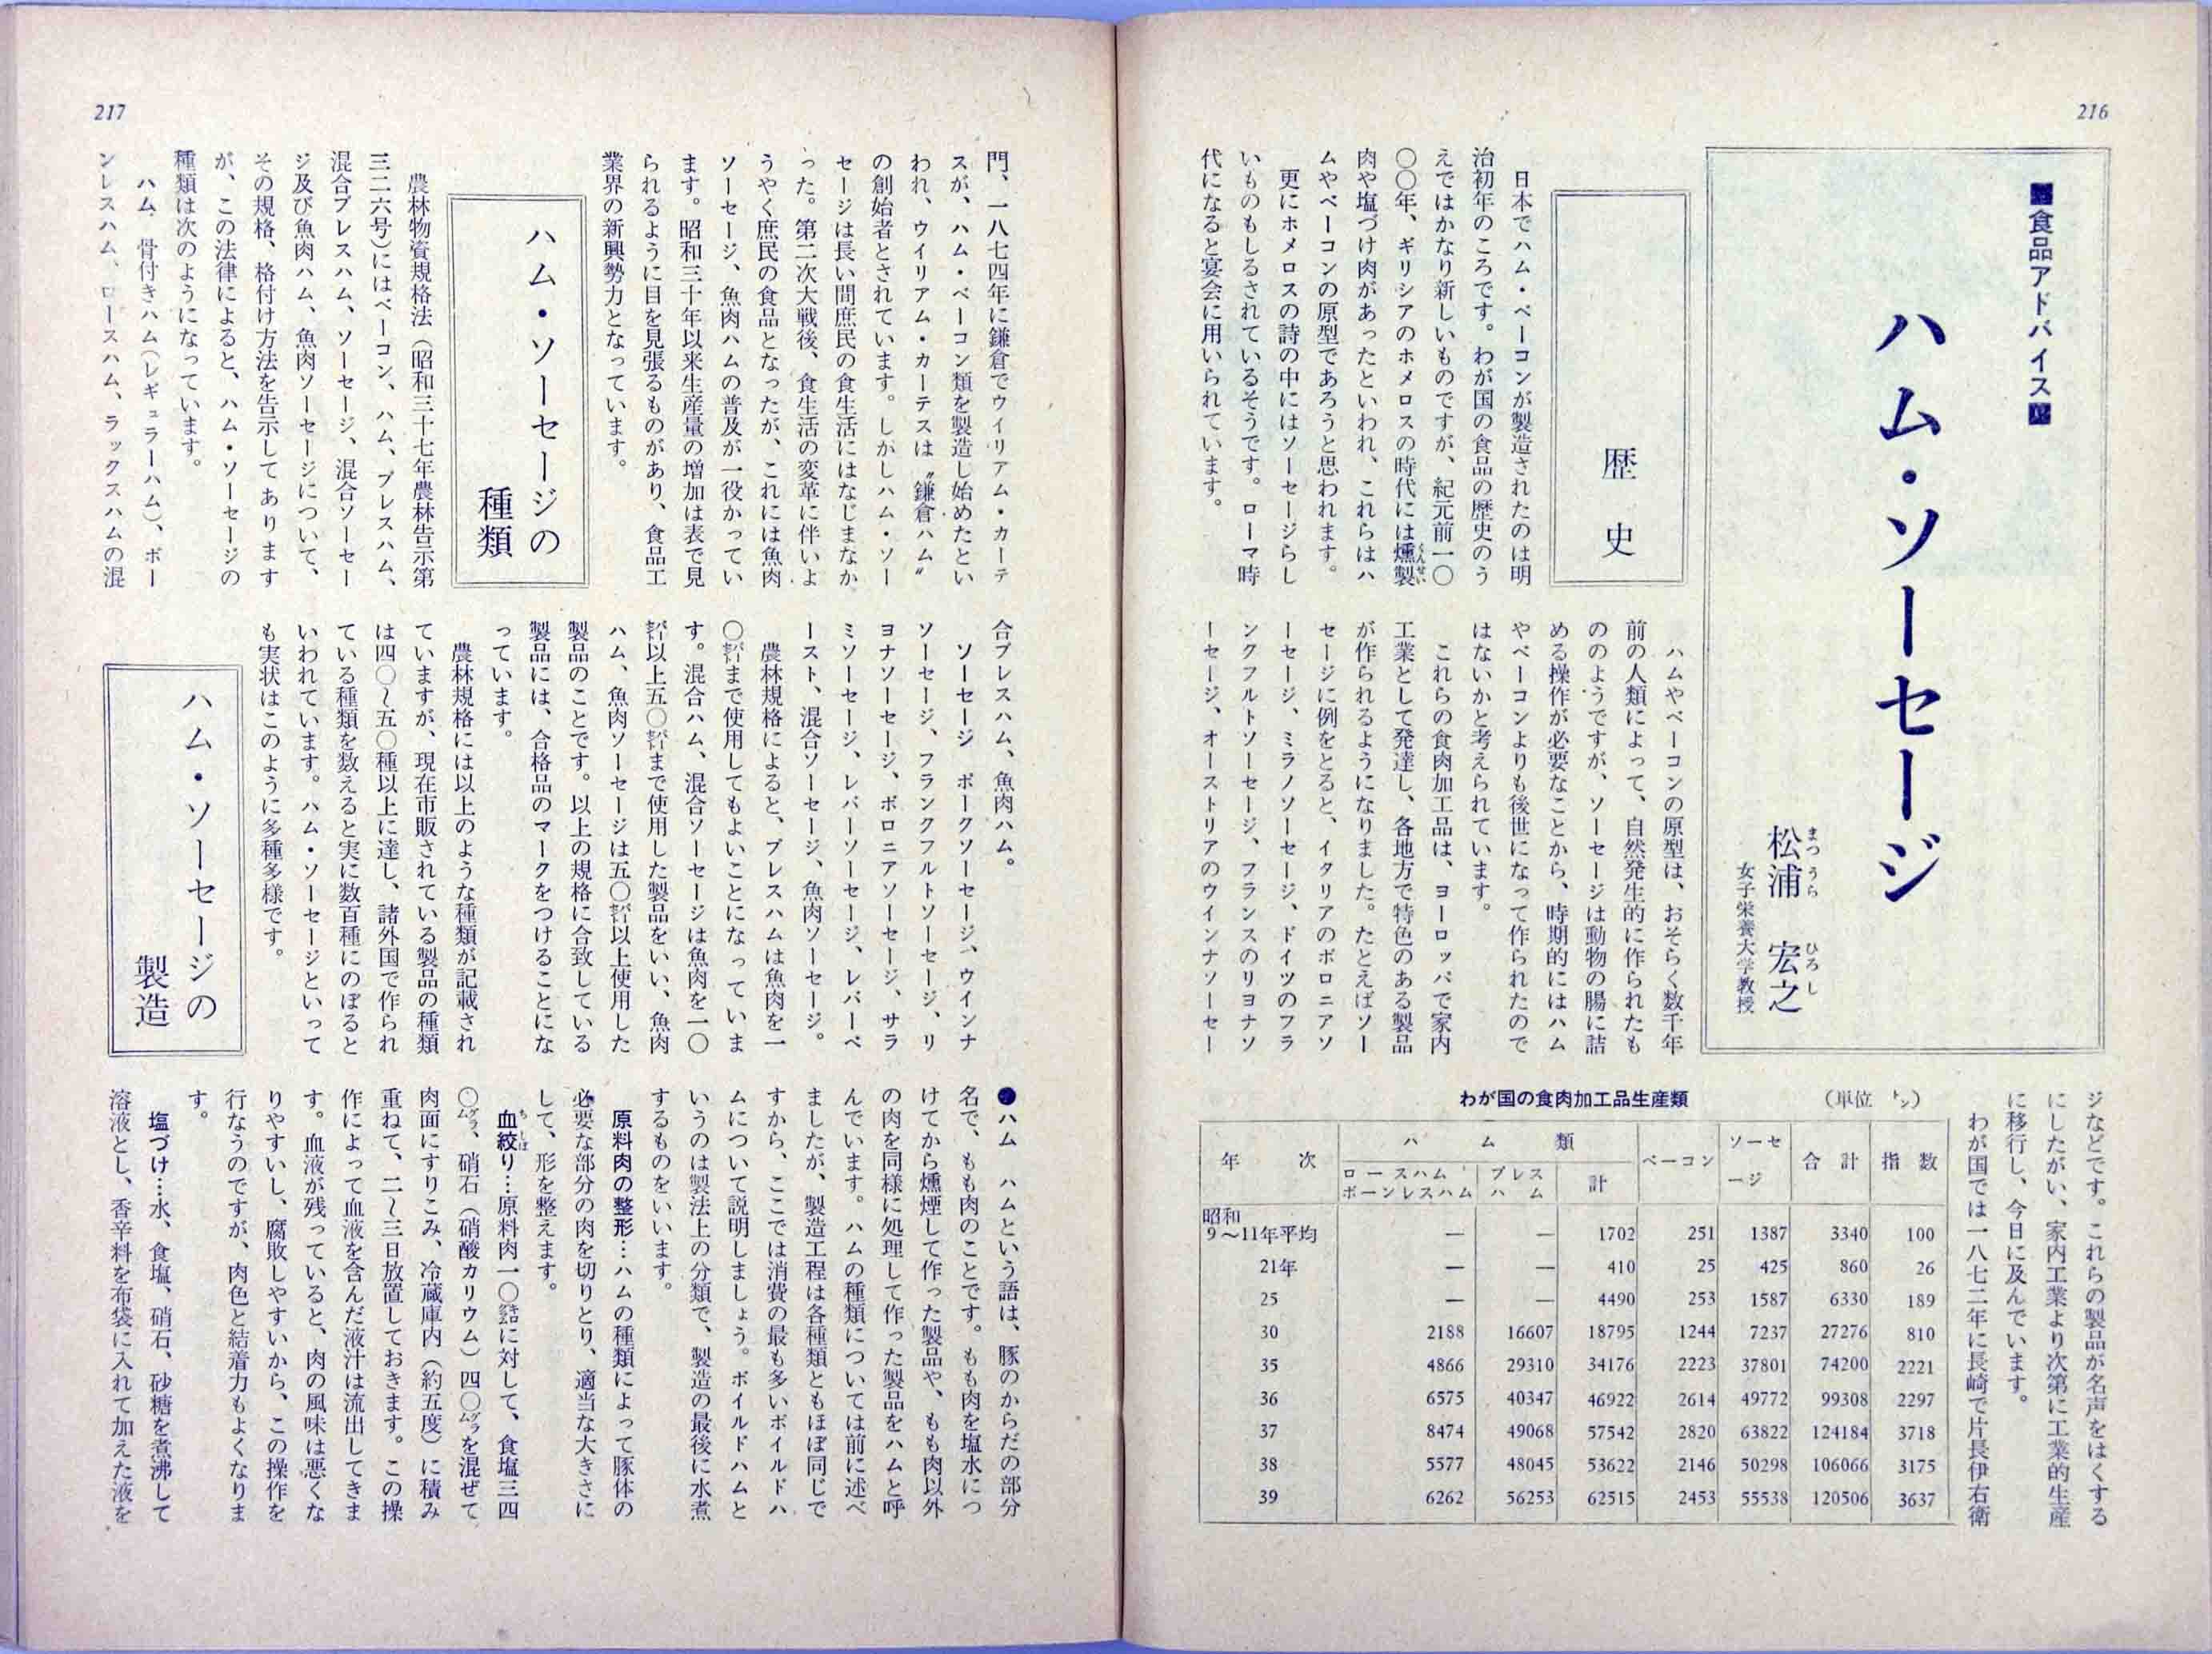 216
■食品アドバイス■
ハム・ソーセージ
松浦　宏之
まつうら　ひろし
女子栄養大学教授
歴　史
日本でハム・ベーコンが製造されたのは明
治初年のころです。わが国の食品の歴史のう
えではかなり新しいものですが、紀元前一〇
〇〇年、ギリシアのホメロスの時代には燻製
くんせい
肉や塩づけ肉があったといわれ、これらはハ
ムやベーコンの原型であろうと思われます。
更にホメロスの詩の中にはソーセージらし
いものもしるされているそうです。ローマ時
代になると宴会に用いられています。
ハムやベーコンの原型は、おそらく数千年
前の人類によって、自然発生的に作られたも
ののようですが、ソーセージは動物の腸に詰
める操作が必要なことから、時期的にはハム
やベーコンよりも後世になって作られたので
はないかと考えられています。
これらの食肉加工品は、ヨーロッパで家内
工業として発達し、各地方で特色のある製品
が作られるようになりました。たとえばソー
セージに例をとると、イタリアのボロニアソ
ーセージ、ミラノソーセージ、ドイツのフラ
ンクフルトソーセージ、フランスのリヨナソ
ーセージ、オーストリアのウインナソーセー
ジなどです。これらの製品が名声をはくする
にしたがい、家内工業より次第に工業的生産
に移行し、今日に及んでいます。
わが国では一八七二年に長崎で片長伊右衛
わが国の食肉加工品生産類　（単位　トン）
年　次　ハム類　ベーコン　ソーセージ　合計　指数
ロースハム　ボーンレスハム　プレスハム　計
昭和
9〜11年平均　—　—　1702　251　1387　3340　100
21年　—　—　410　25　425　860　26
25　—　—　4490　253　1587　6330　189
30　2188　16607　18795　1244　7237　27276　810
35　4866　29310　34176　2223　37801　74200　2221
36　6575　40347　46922　2614　49772　99308　2297
37　8474　49068　57542　2820　63822　124184　3718
38　5577　48045　53622　2146　50298　106066　3175
39　6262　56253　62515　2453　55538　120506　3637
217
門、一八七四年に鎌倉でウイリアム・カーテ
スが、ハム・ベーコン類を製造し始めたとい
われ、ウイリアム・カーテスは〝鎌倉ハム〟
の創始者とされています。しかしハム・ソー
セージは長い間庶民の食生活にはなじまなか
った。第二次大戦後、食生活の変革に伴いよ
うやく庶民の食品となったが、これには魚肉
ソーセージ、魚肉ハムの普及が一役かってい
ます。昭和三十年以来生産量の増加は表で見
られるように目を見張るものがあり、食品工
業界の新興勢力となっています。
ハム・ソーセージの
種類
農林物資規格法（昭和三十七年農林告示第
三二六号）にはベーコン、ハム、プレスハム、
混合プレスハム、ソーセージ、混合ソーセー
ジ及び魚肉ハム、魚肉ソーセージについて、
その規格、格付け方法を告示してあります
が、この法律によると、ハム・ソーセージの
種類は次のようになっています。
ハム　骨付きハム（レギュラーハム）、ボー
ンレスハム、ロースハム、ラックスハムの混
合プレスハム、魚肉ハム。
ソーセージ　ポークソーセージ、ウインナ
ソーセージ、フランクフルトソーセージ、リ
ヨナソーセージ、ボロニアソーセージ、サラ
ミソーセージ、レバーソーセージ、レバーペ
ースト、混合ソーセージ、魚肉ソーセージ。
農林規格によると、プレスハムは魚肉を一
〇㌫まで使用してもよいことになっていま
す。混合ハム、混合ソーセージは魚肉を一〇
㌫以上五〇㌫まで使用した製品をいい、魚肉
ハム、魚肉ソーセージは五〇㌫以上使用した
製品のことです。以上の規格に合致している
製品には、合格品のマークをつけることにな
っています。
農林規格には以上のような種類が記載され
ていますが、現在市販されている製品の種類
は四〇〜五〇種以上に達し、諸外国で作られ
ている種類を数えると実に数百種にのぼると
いわれています。ハム・ソーセージといって
も実状はこのように多種多様です。
ハム・ソーセージの
製造
●ハム　ハムという語は、豚のからだの部分
名で、もも肉のことです。もも肉を塩水につ
けてから燻煙して作った製品や、もも肉以外
の肉を同様に処理して作った製品をハムと呼
んでいます。ハムの種類については前に述べ
ましたが、製造工程は各種類ともほぼ同じで
すから、ここでは消費の最も多いボイルドハ
ムについて説明しましょう。ボイルドハムと
いうのは製法上の分類で、製造の最後に水煮
するものをいいます。
原料肉の整形…ハムの種類によって豚体の
必要な部分の肉を切りとり、適当な大きさに
して、形を整えます。
血絞り…原料肉一〇㌔㌘に対して、食塩三四
ちしぼ
〇㌘、硝石（硝酸カリウム）四〇㌘を混ぜて
肉面にすりこみ、冷蔵庫内（約五度）に積み
重ねて、二〜三日放置しておきます。この操
作によって血液を含んだ液汁は流出してきま
す。血液が残っていると、肉の風味は悪くな
りやすいし、腐敗しやすいから、この操作を
行なうのですが、肉色と結着力もよくなりま
す。
塩づけ…水、食塩、硝石、砂糖を煮沸して
溶液とし、香辛料を布袋に入れて加えた液を